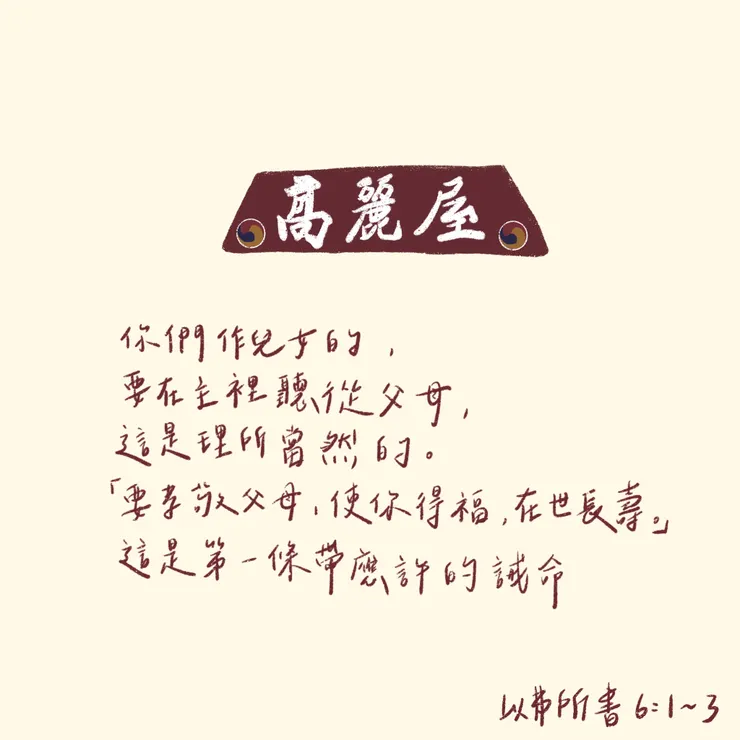 高麗屋
你們作兒女的，
要在主裡聽從父母，
這是理所當然的。
「要孝敬父母，使你得福，在世長壽。」
這是第一條帶應許的誡命
以弗所書 6:1~3